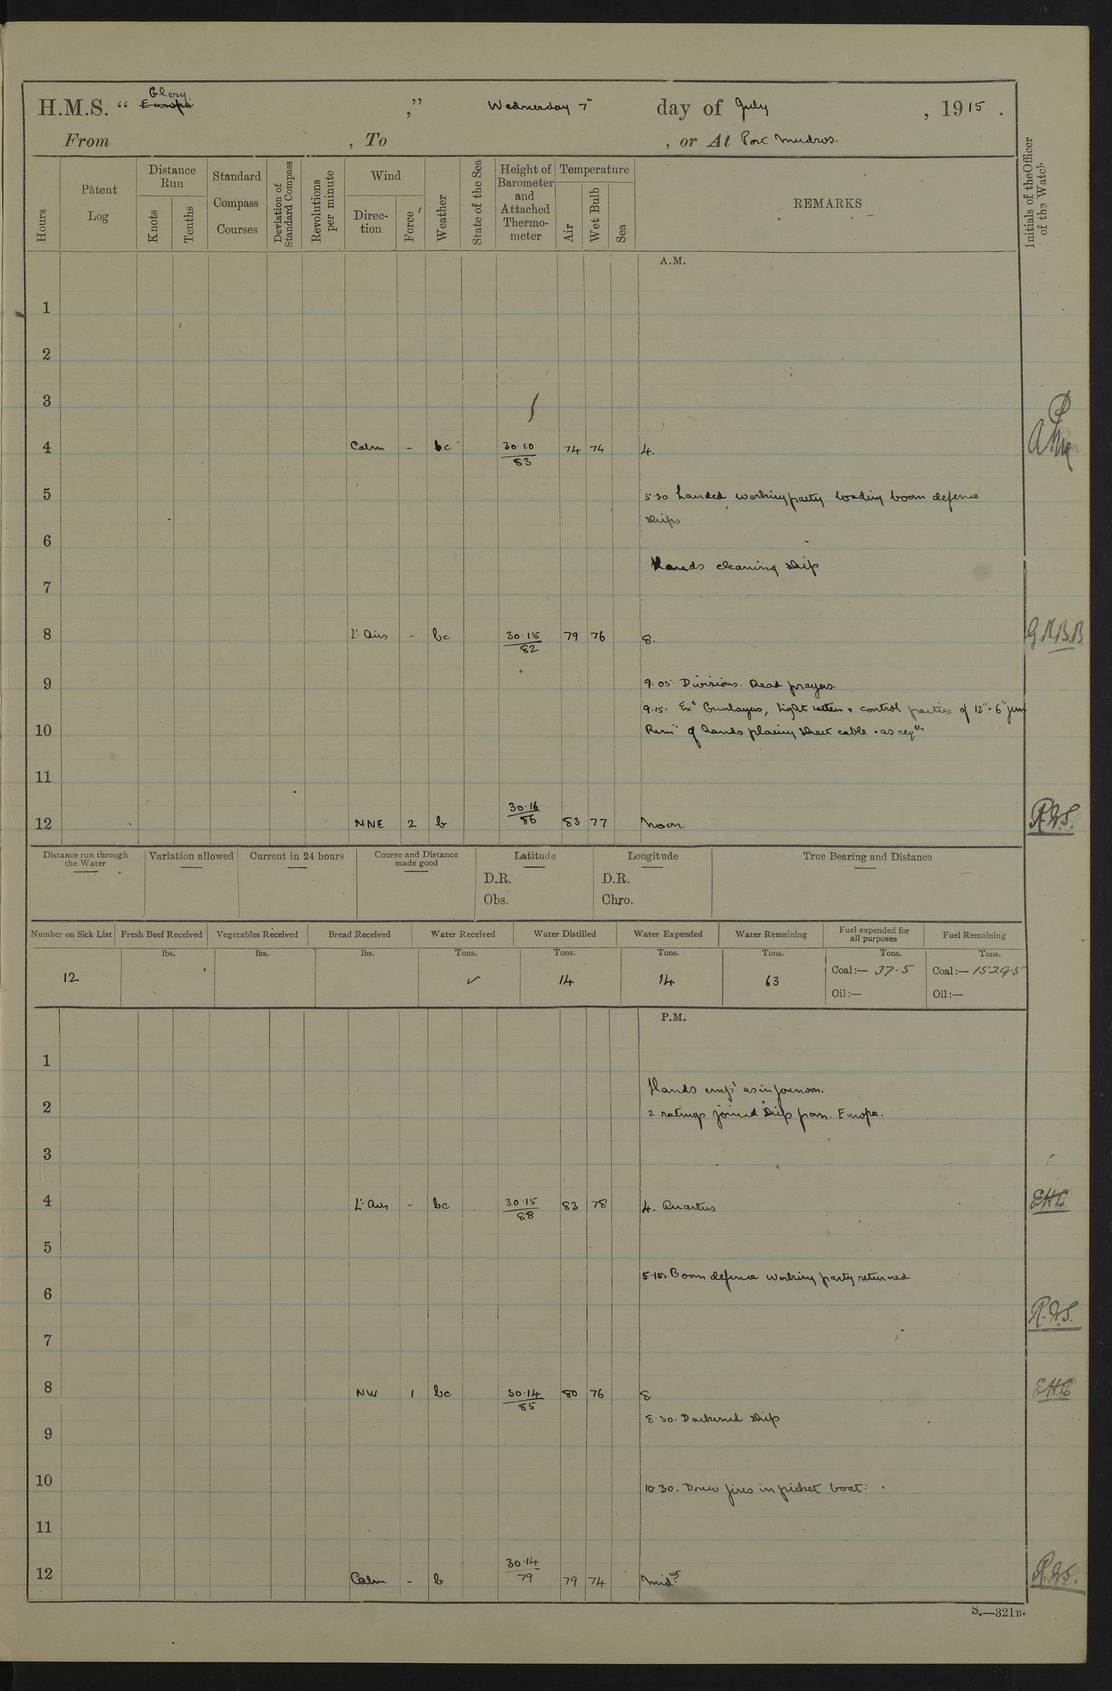 Glory
H.M.S. “ Europa ,” Wednesday 7th day of July , 1915 .
From , To , or At Port Mudros.
Hours
Patent Log
Distance Run
Knots Tenths
Standard Compass Courses
Deviation of Standard Compass
Revolutions per minute
Wind
Direction Force
Weather
State of the Sea
Height of Barometer and Attached Thermometer
Temperature
Air Wet Bulb Sea
REMARKS
Initials of the Officer of the Watch
A.M.
1
2
3
4 Calm - bc 30.10/83 74 74 4.
5 5.30. Landed working party loading boom defence
ships
6
Hands cleaning ship
7
8 Lt Airs - bc 30.15/82 79 76 8. G.H.B.B
9 9.05. Divisions. Read prayers.
9.15. Exd Gunlayers, Sight setters & control parties of 12" & 6" guns
10 Remr of hands placing sheet cable & as reqd
11
12 NNE 2 b 30.16/86 83 77 Noon. R.W.S.
Distance run through the Water
Variation allowed
Current in 24 hours
Course and Distance made good
Latitude
D.R.
Obs.
Longitude
D.R.
Chro.
True Bearing and Distance
Number on Sick List Fresh Beef Received Vegetables Received Bread Received Water Received Water Distilled Water Expended Water Remaining Fuel expended for all purposes Fuel Remaining
lbs. lbs. lbs. Tons. Tons. Tons. Tons. Tons. Tons.
12 ✓ 14 14 63 Coal:— 37.5 Coal:— 1529.5
Oil:— Oil:—
P.M.
1
Hands empd as in forenoon.
2 2 ratings joined ship from Europa.
3
4 Lt Airs - bc 30.15/88 83 78 4. Quarters EHL
5
5.15. Boom defence working party returned
6
R.W.S.
7
8 NW 1 bc 30.14/85 80 76 8 EHL
8.30. Darkened ship
9
10 10.30. Drew fires in picket boat.
11
12 Calm - b 30.14/79 79 74 Midnt R.W.S.
S.—321B.